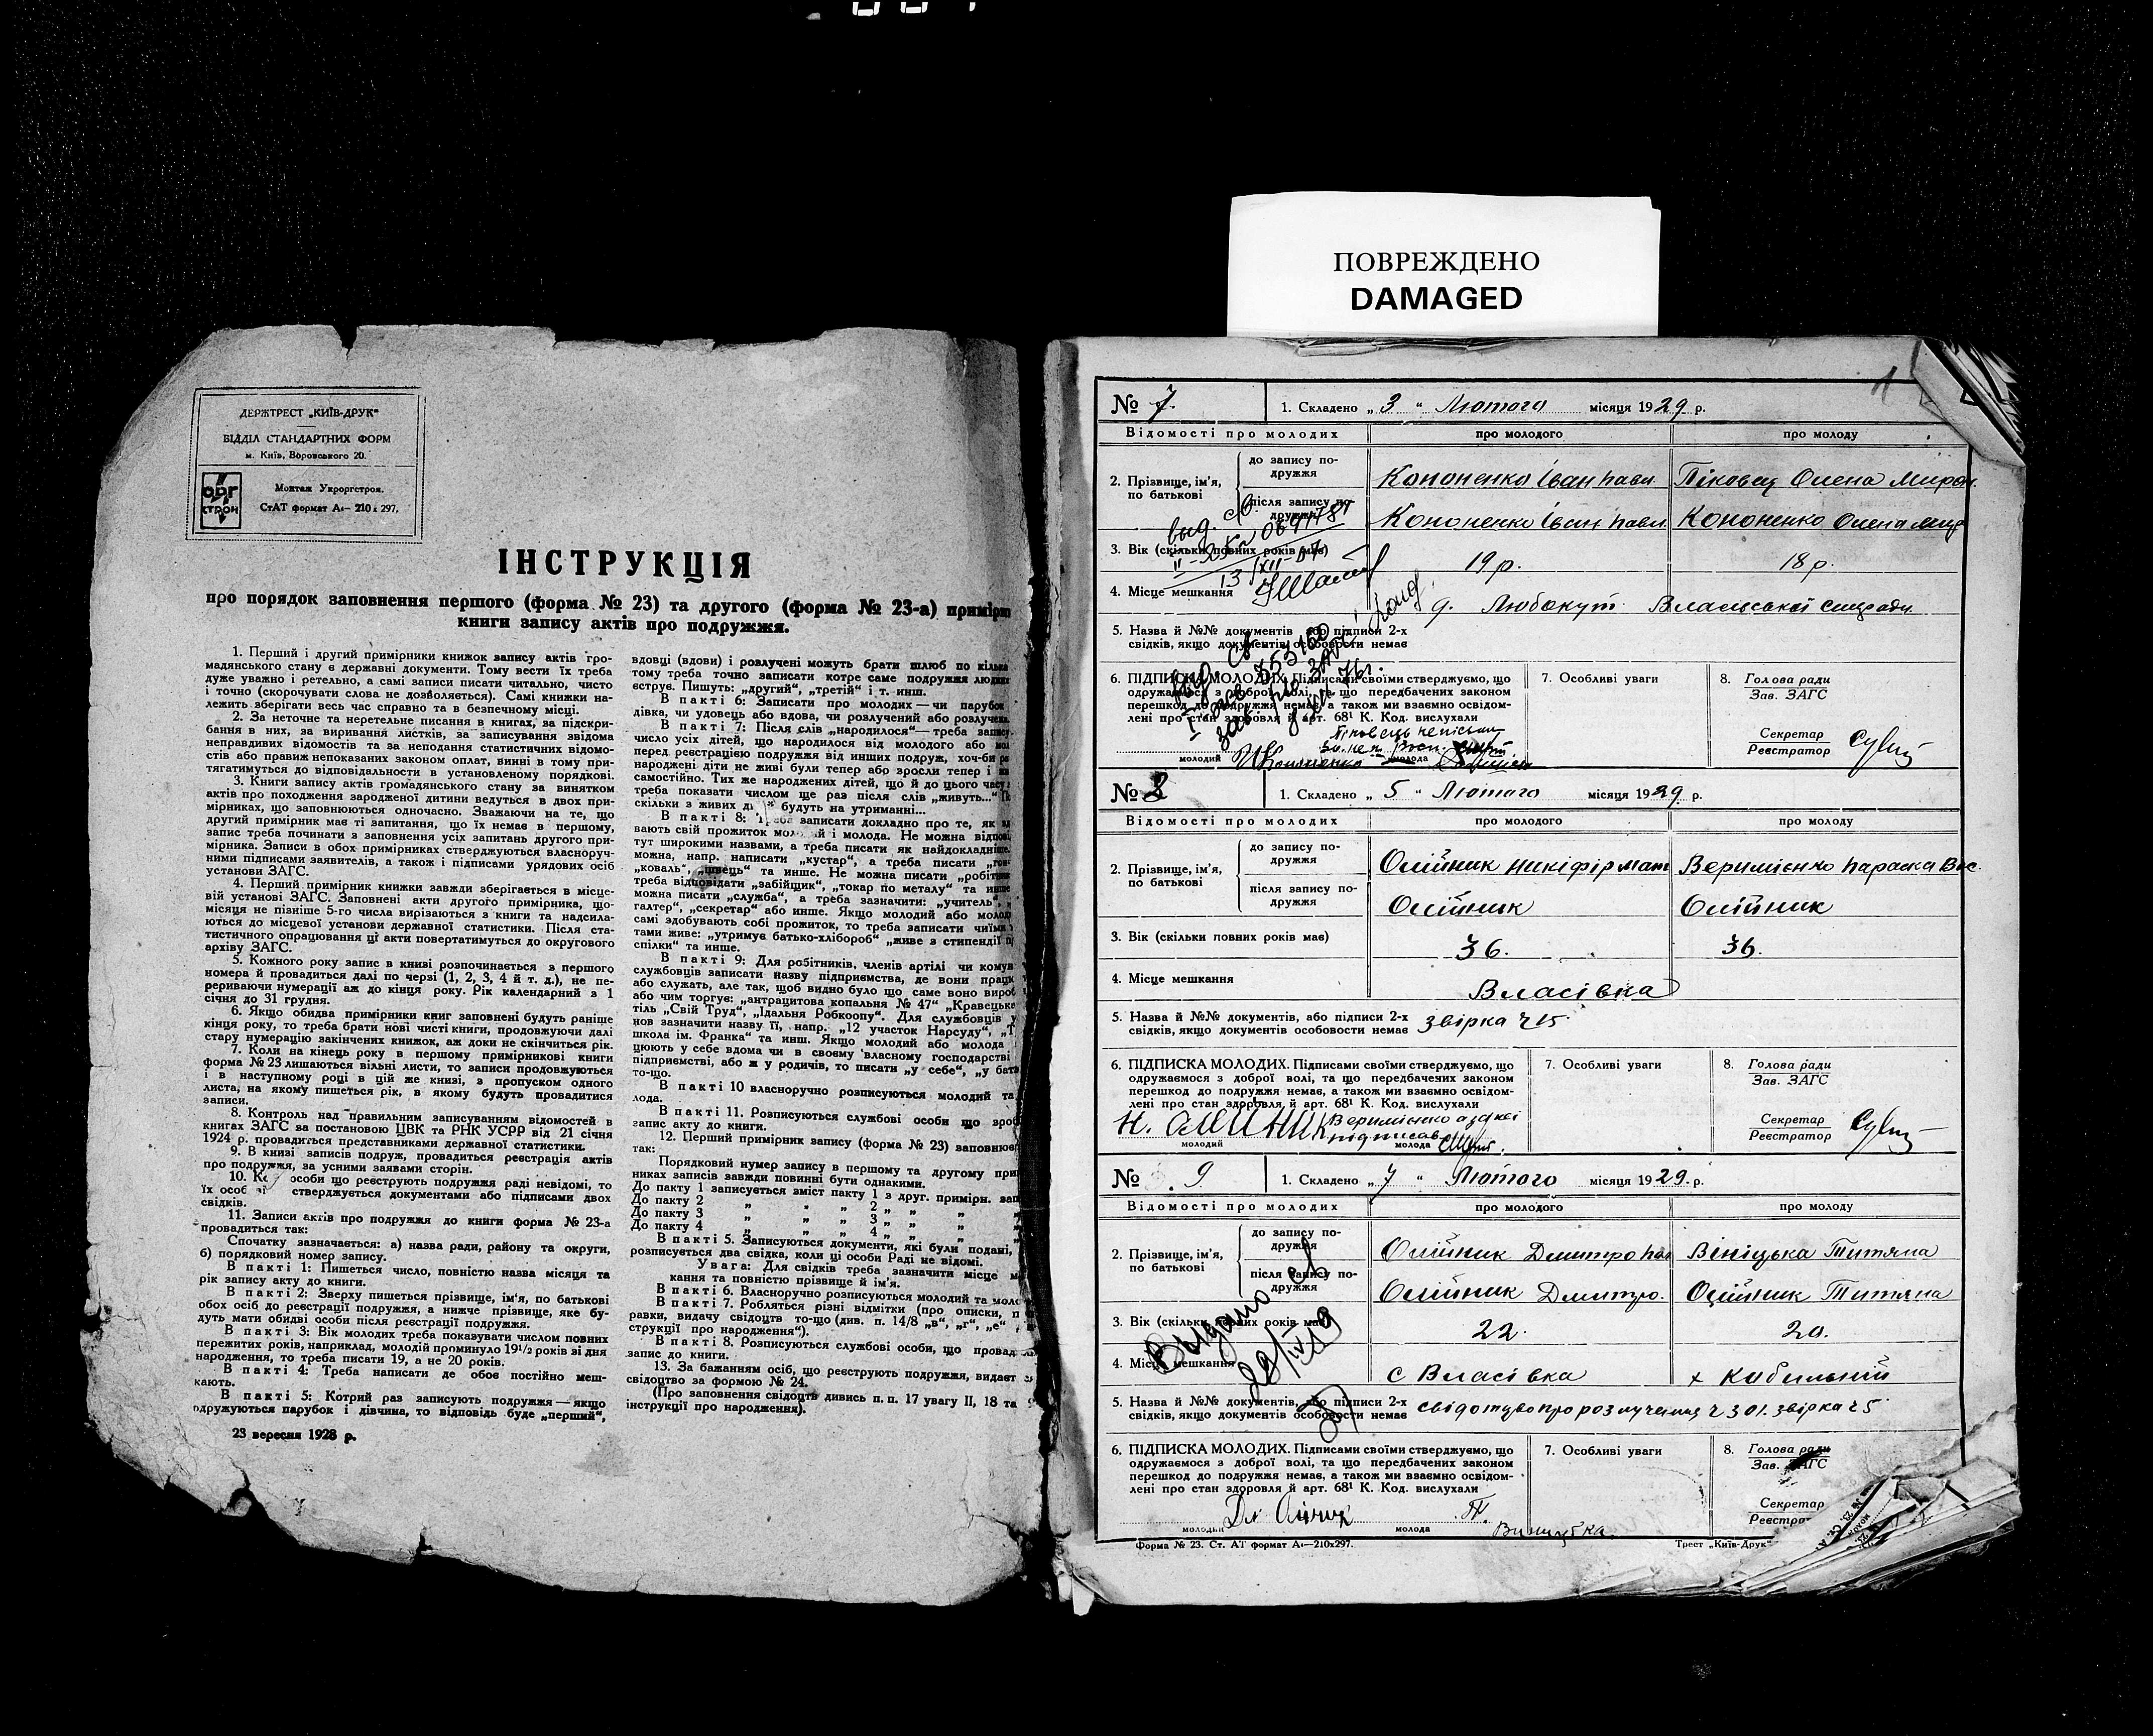 ПОВРЕЖДЕНО
DAMAGED
ДЕРЖТРЕСТ „КИЇВ-ДРУК“
ВІДДІЛ СТАНДАРТНИХ ФОРМ
м. Київ, Воровського 20.
ОРГ
СТРОЙ
Монтаж Укроргстроя.
СтАТ формат А4— 210 х 297,
ІНСТРУКЦІЯ
про порядок заповнення першого (форма № 23) та другого (форма № 23-а) примірн
книги запису актів про подружжя.
1. Перший і другий примірники книжок запису актів гро-
мадянського стану є державні документи. Тому вести їх треба
дуже уважно і ретельно, а самі записи писати читально, чисто
і точно (скорочувати слова не дозволяється). Самі книжки на-
лежить зберігати весь час справно та в безпечному місці.
2. За неточне та неретельне писання в книгах, за підскри-
бання в них, за виривання листків, за записування звідома
неправдивих відомостів та за неподання статистичних відомо-
стів або правиж непоказаних законом оплат, винні в тому при-
тягатимуться до відповідальности в установленому порядкові.
3. Книги запису актів громадянського стану за винятком
актів про походження зародженої дитини ведуться в двох при-
мірниках, що заповнюються одночасно. Зважаючи на те, що
другий примірник має ті запитання, що їх немає в першому,
запис треба починати з заповнення усіх запитань другого при-
мірника. Записи в обох примірниках стверджуються власноруч-
ними підписами заявителів, а також і підписами урядових осіб
установи ЗАГС.
4. Перший примірник книжки завжди зберігається в місце-
вій установі ЗАГС. Заповнені акти другого примірника, що-
місяця не пізніше 5-го числа вирізаються з книги та надсила-
ються до місцевої установи державної статистики. Після ста-
тистичного опрацювання ці акти повертатимуться до округового
архіву ЗАГС.
5. Кожного року запис в книзі розпочинається з першого
номера й провадиться далі по черзі (1, 2, 3, 4 й т. д.), не пе-
рериваючи нумерації аж до кінця року. Рік календарний з 1
січня до 31 грудня.
6. Якщо обидва примірники книг заповнені будуть раніше
кінця року, то треба брати нові чисті книги, продовжуючи далі
стару нумерацію закінчених книжок, аж доки не скінчиться рік.
7. Коли на кінець року в першому примірникові книги
форма № 23 лишаються вільні листи, то записи продовжуються
і в наступному році в цій же книзі, з пропуском одного
листа, на якому пишеться рік, в якому будуть провадитися
записи.
8. Контроль над правильним записуванням відомостей в
книгах ЗАГС за постановою ЦВК та РНК УСРР від 21 січня
1924 р. провадиться представниками державної статистики.
9. В книзі записів подруж, провадиться реєстрація актів
про подружжя, за усними заявами сторін.
10. Ко особи що реєструють подружжя раді невідомі, то
їх особ стверджується документами або підписами двох
свідків.
11. Записи актів про подружжя до книги форма № 23-а
провадиться так:
Спочатку зазначається: а) назва ради, району та округи,
б) порядковий номер запису.
В пакті 1: Пишеться число, повністю назва місяця та
рік запису акту до книги.
В пакті 2: Зверху пишеться прізвище, ім'я, по батькові
обох осіб до реєстрації подружжя, а нижче прізвище, яке бу-
дуть мати обидві особи після реєстрації подружжя.
В пакті 3: Вік молодих треба показувати числом повних
пережитих років, наприклад, молодій проминуло 19½ років зі дня
народження, то треба писати 19, а не 20 років.
В пакті 4: Треба написати де обоє постійно меш-
кають.
В пакті 5: Котрий раз записують подружжя — якщо
одружуються парубок і дівчина, то відповідь буде „перший“,
23 вересня 1928 р.
вдовці (вдови) і розлучені можуть брати шлюб по кілька
тому треба точно записати котре саме подружжя людин
еструє. Пишуть: „другий“, „третій“ і т. инш.
В пакті 6: Записати про молодих — чи парубок
дівка, чи удовець або вдова, чи розлучений або розлучена.
В пакті 7: Після слів „народилося“ — треба запису
число усіх дітей, що народилося від молодого або мол
перед реєстрацією подружжя від инших подруж, хоч-би
народжені діти не живі були тепер або зросли тепер і
самостійно. Тих же народжених дітей, що й до цього часу
треба показати числом ще раз після слів „живуть...“
скільки з живих ді будуть на утриманні...
В пакті 8: Треба записати докладно про те, як
вають свій прожиток мол й і молода. Не можна відпові
тут широкими назвами, а треба писати як найдокладніше.
можна, напр. написати „кустар“, а треба писати „гон
„коваль“, „швець“ та инше. Не можна писати „робітни
треба відповідати „забійщик“, „токар по металу“ та инше
можна писати „служба“, а треба зазначити: „учитель“,
галтер“, „секретар“ або инше. Якщо молодий або молод
самі здобувають собі прожиток, то треба записати чиїми
тами живе: „утримує батько-хлібороб“ „живе з стипендії
спілки“ та инше.
В пакті 9: Для робітників, членів артілі чи комун
службовців записати назву підприємства, де вони працю
або служать, але так, щоб видно було що саме воно вироб
або чим торгує: „антрацитова копальня № 47“ „Кравецька
тіль „Свій Труд“, „Їдальня Робкоопу“. Для службовців у
нов зазначити назву її, напр. „12 участок Нарсуду“, „Т
школа ім. Франка“ та инш. Якщо молодий або молода
цюють у себе вдома чи в своєму власному господарстві
підприємстві, або ж у родичів, то писати „у себе“, „у бат
то-що.
В пакті 10 власноручно розписуються молодий та
лода.
В пакті 11. Розписуються службові особи що зроб
запис акту до книги.
12. Перший примірник запису (форма № 23) заповнює
так:
Порядковий нумер запису в першому та другому при
никах записів завжди повинні бути однакими.
До пакту 1 записується зміст пакту 1 з друг. примірн. зап
До пакту 2 „ „ „ 2 „ „ „ „
До пакту 3 „ „ „ 3 „ „ „ „
До пакту 4 „ „ „ 4 „ „ „ „
В пакті 5. Записуються документи, які були подані,
розписується два свідка, коли ці особи Раді не відомі.
Увага: Для свідків треба зазначити місце м
кання та повністю прізвище й ім'я.
В пакті 6. Власноручно розписуються молодий та моло
В пакті 7. Робляться різні відмітки (про описки, п
равки, видачу свідоцтв то-що (див. п. 14/8 „в“, „г“, „е“
струкції про народження“).
В пакті 8. Розписуються службові особи, що провад
запис до книги.
13. За бажанням осіб, що реєструють подружжя, видаєт
свідоцтво за формою № 24.
(Про заповнення свідоцтв дивись п. п. 17 увагу II, 18 та
інструкції про народження).
№ 7. 1. Складено „ 3 “ Лютого місяця 1929 р.
Відомості про молодих про молодого про молоду
2. Прізвище, ім'я, по батькові
до запису по-дружжя Кононенко Іван Павл Піковец Олена Мирон.
після запису по-дружжя Кононенко Іван Павл Кононенко Олена Мир
3. Вік (скільки повних років має) 19 р. 18 р.
4. Місце мешкання Любокут Власівської сільради
5. Назва й №№ документів, або підписи 2-х
свідків, якщо документів особовости немає
6. ПІДПИСКА МОЛОДИХ. Підписами своїми стверджуємо, що
одружаємося з доброї волі, та що передбачених законом
перешкод до подружжя немає, а також ми взаємно освідом-
лені про стан здоров'я й арт. 68¹ К. Код. вислухали
молодий Кононенко молода
7. Особливі уваги
8. Голова ради
Зав. ЗАГС
Секретар
Реєстратор
№ 8 1. Складено „ 5 “ Лютого місяця 1929 р.
Відомості про молодих про молодого про молоду
2. Прізвище, ім'я, по батькові
до запису по-дружжя Олійник Никіфір Мат Веримієнко Параска Вас.
після запису по-дружжя Олійник Олійник
3. Вік (скільки повних років має) 36. 36.
4. Місце мешкання Власівка
5. Назва й №№ документів, або підписи 2-х
свідків, якщо документів особовости немає звірка ч 15
6. ПІДПИСКА МОЛОДИХ. Підписами своїми стверджуємо, що
одружаємося з доброї волі, та що передбачених законом
перешкод до подружжя немає, а також ми взаємно освідом-
лені про стан здоров'я й арт. 68¹ К. Код. вислухали
Н. Олійник Веримієнко
молодий молода
7. Особливі уваги
8. Голова ради
Зав. ЗАГС
Секретар
Реєстратор
№ 9 1. Складено „ 7 “ Лютого місяця 1929. р.
Відомості про молодих про молодого про молоду
2. Прізвище, ім'я, по батькові
до запису по-дружжя Олійник Дмитро Пав Вініцька Титяна
після запису по-дружжя Олійник Дмитро. Олійник Титяна
3. Вік (скільки повних років має) 22. 20.
4. Місце мешкання с Власівка х Кобильний
5. Назва й №№ документів, або підписи 2-х
свідків, якщо документів особовости немає свідотцво про розлучения ч 301. звірка ч 5
Выдано св
28/IV 19
6. ПІДПИСКА МОЛОДИХ. Підписами своїми стверджуємо, що
одружаємося з доброї волі, та що передбачених законом
перешкод до подружжя немає, а також ми взаємно освідом-
лені про стан здоров'я й арт. 68¹ К. Код. вислухали
молодий молода
7. Особливі уваги
8. Голова ради
Зав. ЗАГС
Секретар
Форма № 23. Ст. АТ формат А4—210х297. Трест „Київ-Друк“